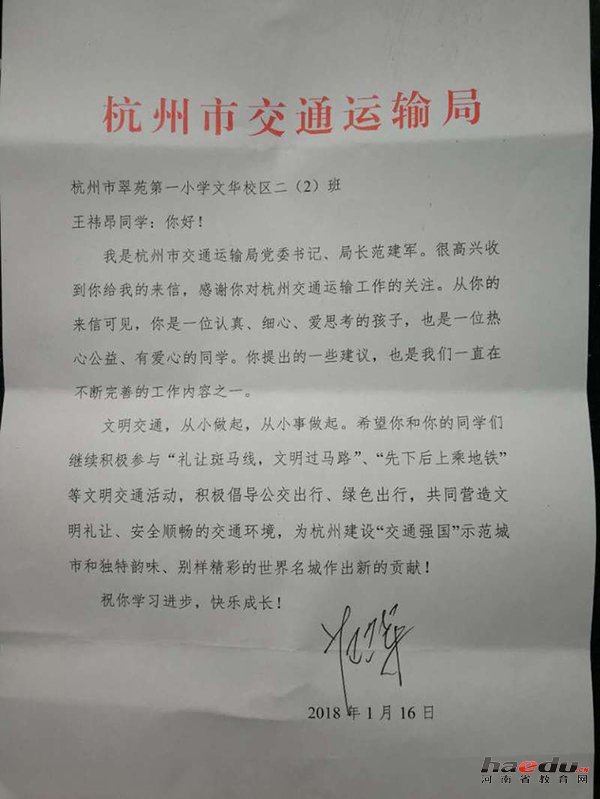 杭州市交通运输局
杭州市翠苑第一小学文华校区二（2）班
王祎昂同学：你好！
我是杭州市交通运输局党委书记、局长范建军。很高兴收
到你给我的来信，感谢你对杭州交通运输工作的关注。从你的
来信可见，你是一位认真、细心、爱思考的孩子，也是一位热
心公益、有爱心的同学。你提出的一些建议，也是我们一直在
不断完善的工作内容之一。
文明交通，从小做起，从小事做起。希望你和你的同学们
继续积极参与“礼让斑马线，文明过马路”、“先下后上乘地铁”
等文明交通活动，积极倡导公交出行、绿色出行，共同营造文
明礼让、安全顺畅的交通环境，为杭州建设“交通强国”示范城
市和独特韵味、别样精彩的世界名城作出新的贡献！
祝你学习进步，快乐成长！
2018 年 1 月 16 日
haedu.cn
河南省教育网